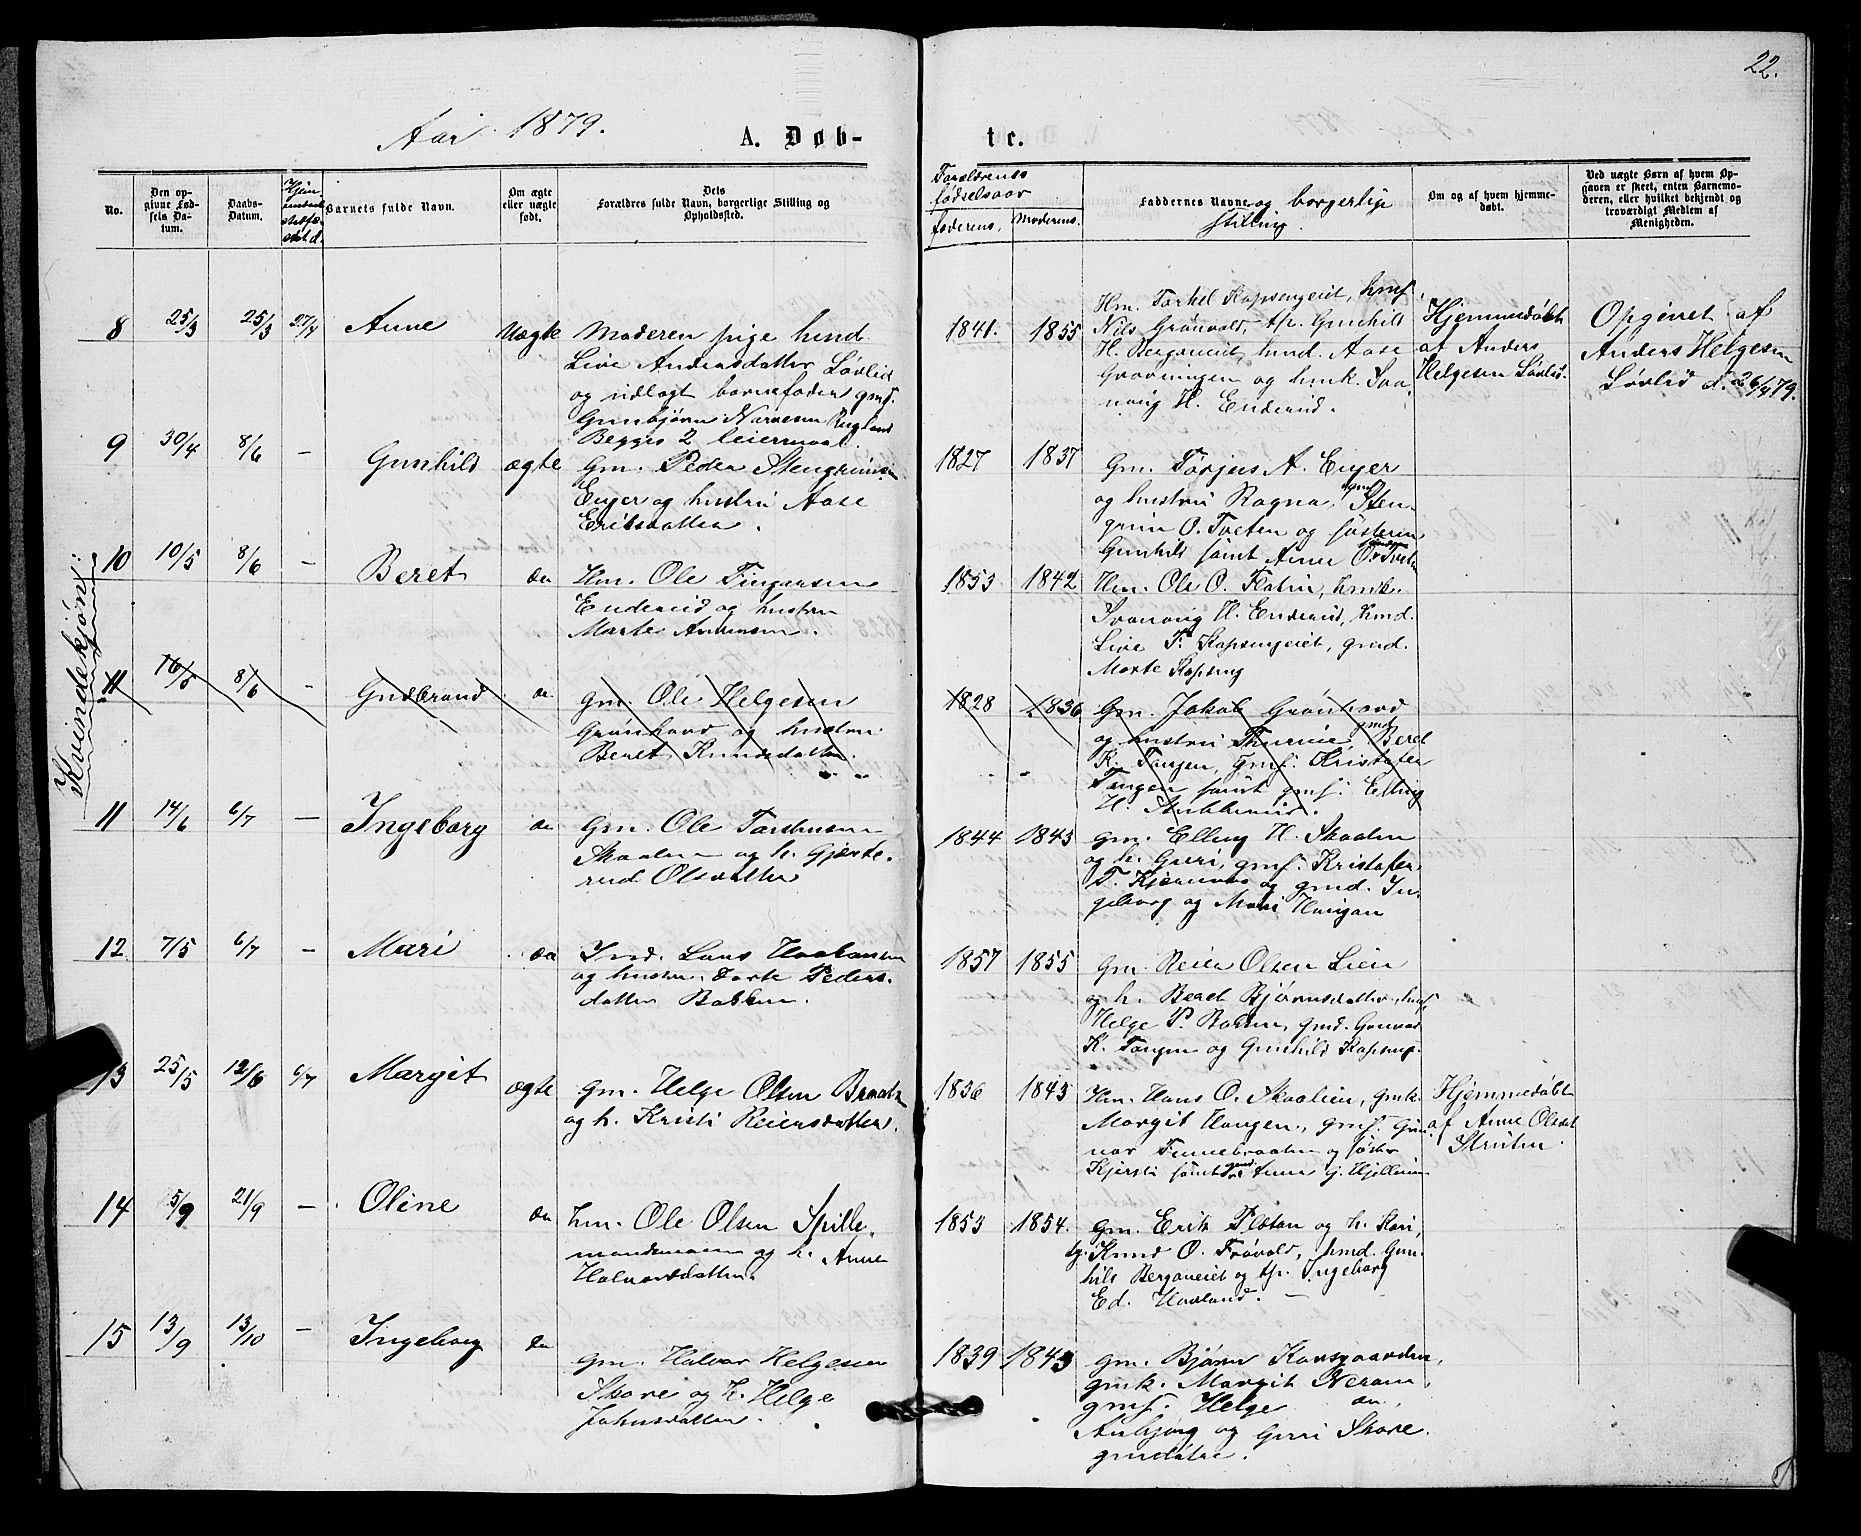 22.
Aar 1879.
A. Døb-
te.
No.
Den op-
givne Fød-
sels Da-
tum.
Daabs-
Datum.
Barnets fulde Navn.
Om ægte
eller uægte
født.
Dets
Forældres fulde Navn, borgerlige Stilling og
Opholdssted.
Forældrenes
fødselsaar
faderens. Moderens.
Faddernes Navne og borgerlige
stilling.
Om og af hvem hjemme-
døbt.
Ved uægte Børn af hvem Op-
gaven er skeet, enten Barnemo-
deren, eller hvilket bekjendt og
troværdigt Medlem af
Menigheden.
Kvindekjøn:
8 25/3 25/3 27/4 Anne Uægte Moderen pige hmd.
Live Andersdatter Løvlid
og udlagt barnefader gmd.
Gunbjørn Narvesen Rugland
Begges 2 leiermaal.
1841. 1855 Hm. Torkel Kapsengeiet, hmf.
Nils Grønvold, tp. Gunhild
H. Berganeiet, hmd. Aase
Grovningen og hmk. Sva-
naug H. Enderud.
Hjemmedøbt
af Anders
Helgesen Løvlid.
Opgivet af
Anders Helgesen
Løvlid d. 26/4 79.
9 30/4 8/6 – Gunhild ægte Gm. Peder Stengrimsen
Enger og hustru Aase
Eriksdatter.
1827 1837 Gm. Torjus A. Enger
og hustru Ragna, gmf. Sten-
grim O. Tveten og søsteren
Gunhild samt Anne O. Tveten
10 10/5 8/6 – Beret do Hm. Ole Fingarsen
Enderud og hustru
Marte Amundsen.
1853 1842 Hm. Ole O. Flatin, hmk.
Svanaug H. Enderud, hmd.
Live T. Kapsengeiet, gmd.
Marte Kapseng
11 16/5 8/6 – Gudbrand do Gm. Ole Helgesen
Grønhovd og hustru
Beret Knudsdatter.
1828 1836 Gm. Jakob Grønhovd
og hustru Thurine, gmd. Beret
K. Tangen, gmf. Kristofer
Tangen samt gmf. Elling
H.
11 14/6 6/7 – Ingeborg do Gm. Ole Torstensen
Skaalen og h. Gjerte-
rud Olsdatter
1844 1843 Gm. Elling H. Skaalen
og h. Guri, gmf. Kristofer
T. og gmd. In-
geborg og Mari Haugan
12 7/5 6/7 – Mari do Ind. Lars Haakonsen
og hustru Dorte Peders-
datter Bakken.
1857 1855 Gm. Reier Olsen Lien
og h. Beret Bjørnsdatter, hmf.
Helge P. Bakken, gmd. Gunvor
K. Tangen og Gunhild Kapseng.
13 25/5 12/6 6/7 Margit ægte Gm. Helge Olsen Braaten
og h. Kristi Reiersdatter.
1836 1843 Hm. Hans O. Skaalien, gmk.
Margit Haugen, gmf. Gun-
nar Finnebraaten og søster
Kjersti samt gmd. Anne G. Hjelleimen
Hjemmedøbt
af Anne Olsdt
Struten
14 5/9 21/9 – Oline do hm. Ole Olsen Spille-
mandsmoen og h. Anne
Halvorsdatter.
1853 1854. Gm. Erik Pløten og h. Kari,
tj. Knud O. Frøvold, hmd. Gun-
hild Berganeiet og tp. Ingeborg
Ed. Havland. –
15 13/9 13/10 – Ingeborg do Gm. Halvor Helgesen
Skare og h. Helge
Johnsdatter.
1839 1843 Gm. Bjørn Kongsgaarden,
gmk. Margit Neraan,
gmf. Helge do,
Anbjørg og Guri Skare
gmdøtre.